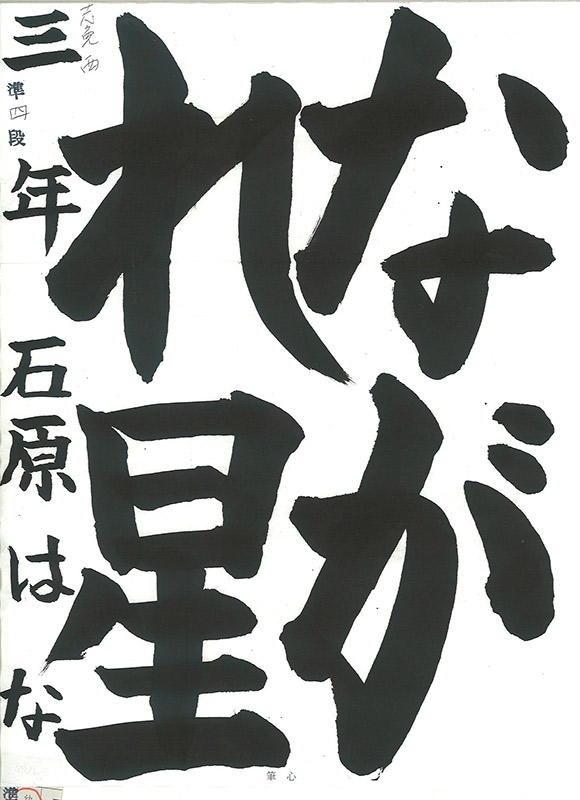 なが
れ星
三年 石原はな
準四段
志免西
筆心
準